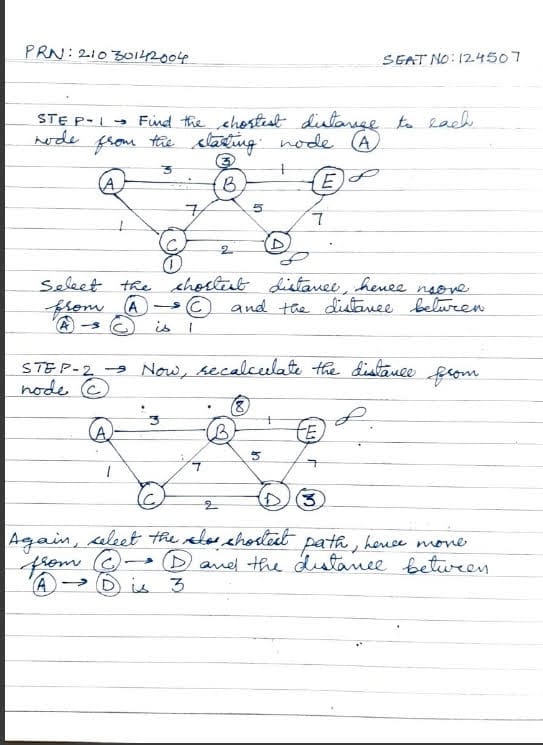 PRN: 21030142004
SEAT NO: 124507
STEP-1 → Find the shortest distance to each
node from the starting node A
3
3
1
A
B
E
∞
7
5
7
1
C
2
D
1
∞
Select the shortest distance, hence move
from A → C and the distance between
A → C is 1
STEP-2 → Now, recalculate the distance from
node C
8
3
1
∞
A
B
E
5
1
7
7
C
2
D
3
Again, select the shortest path, hence move
from C → D and the distance between
A → D is 3